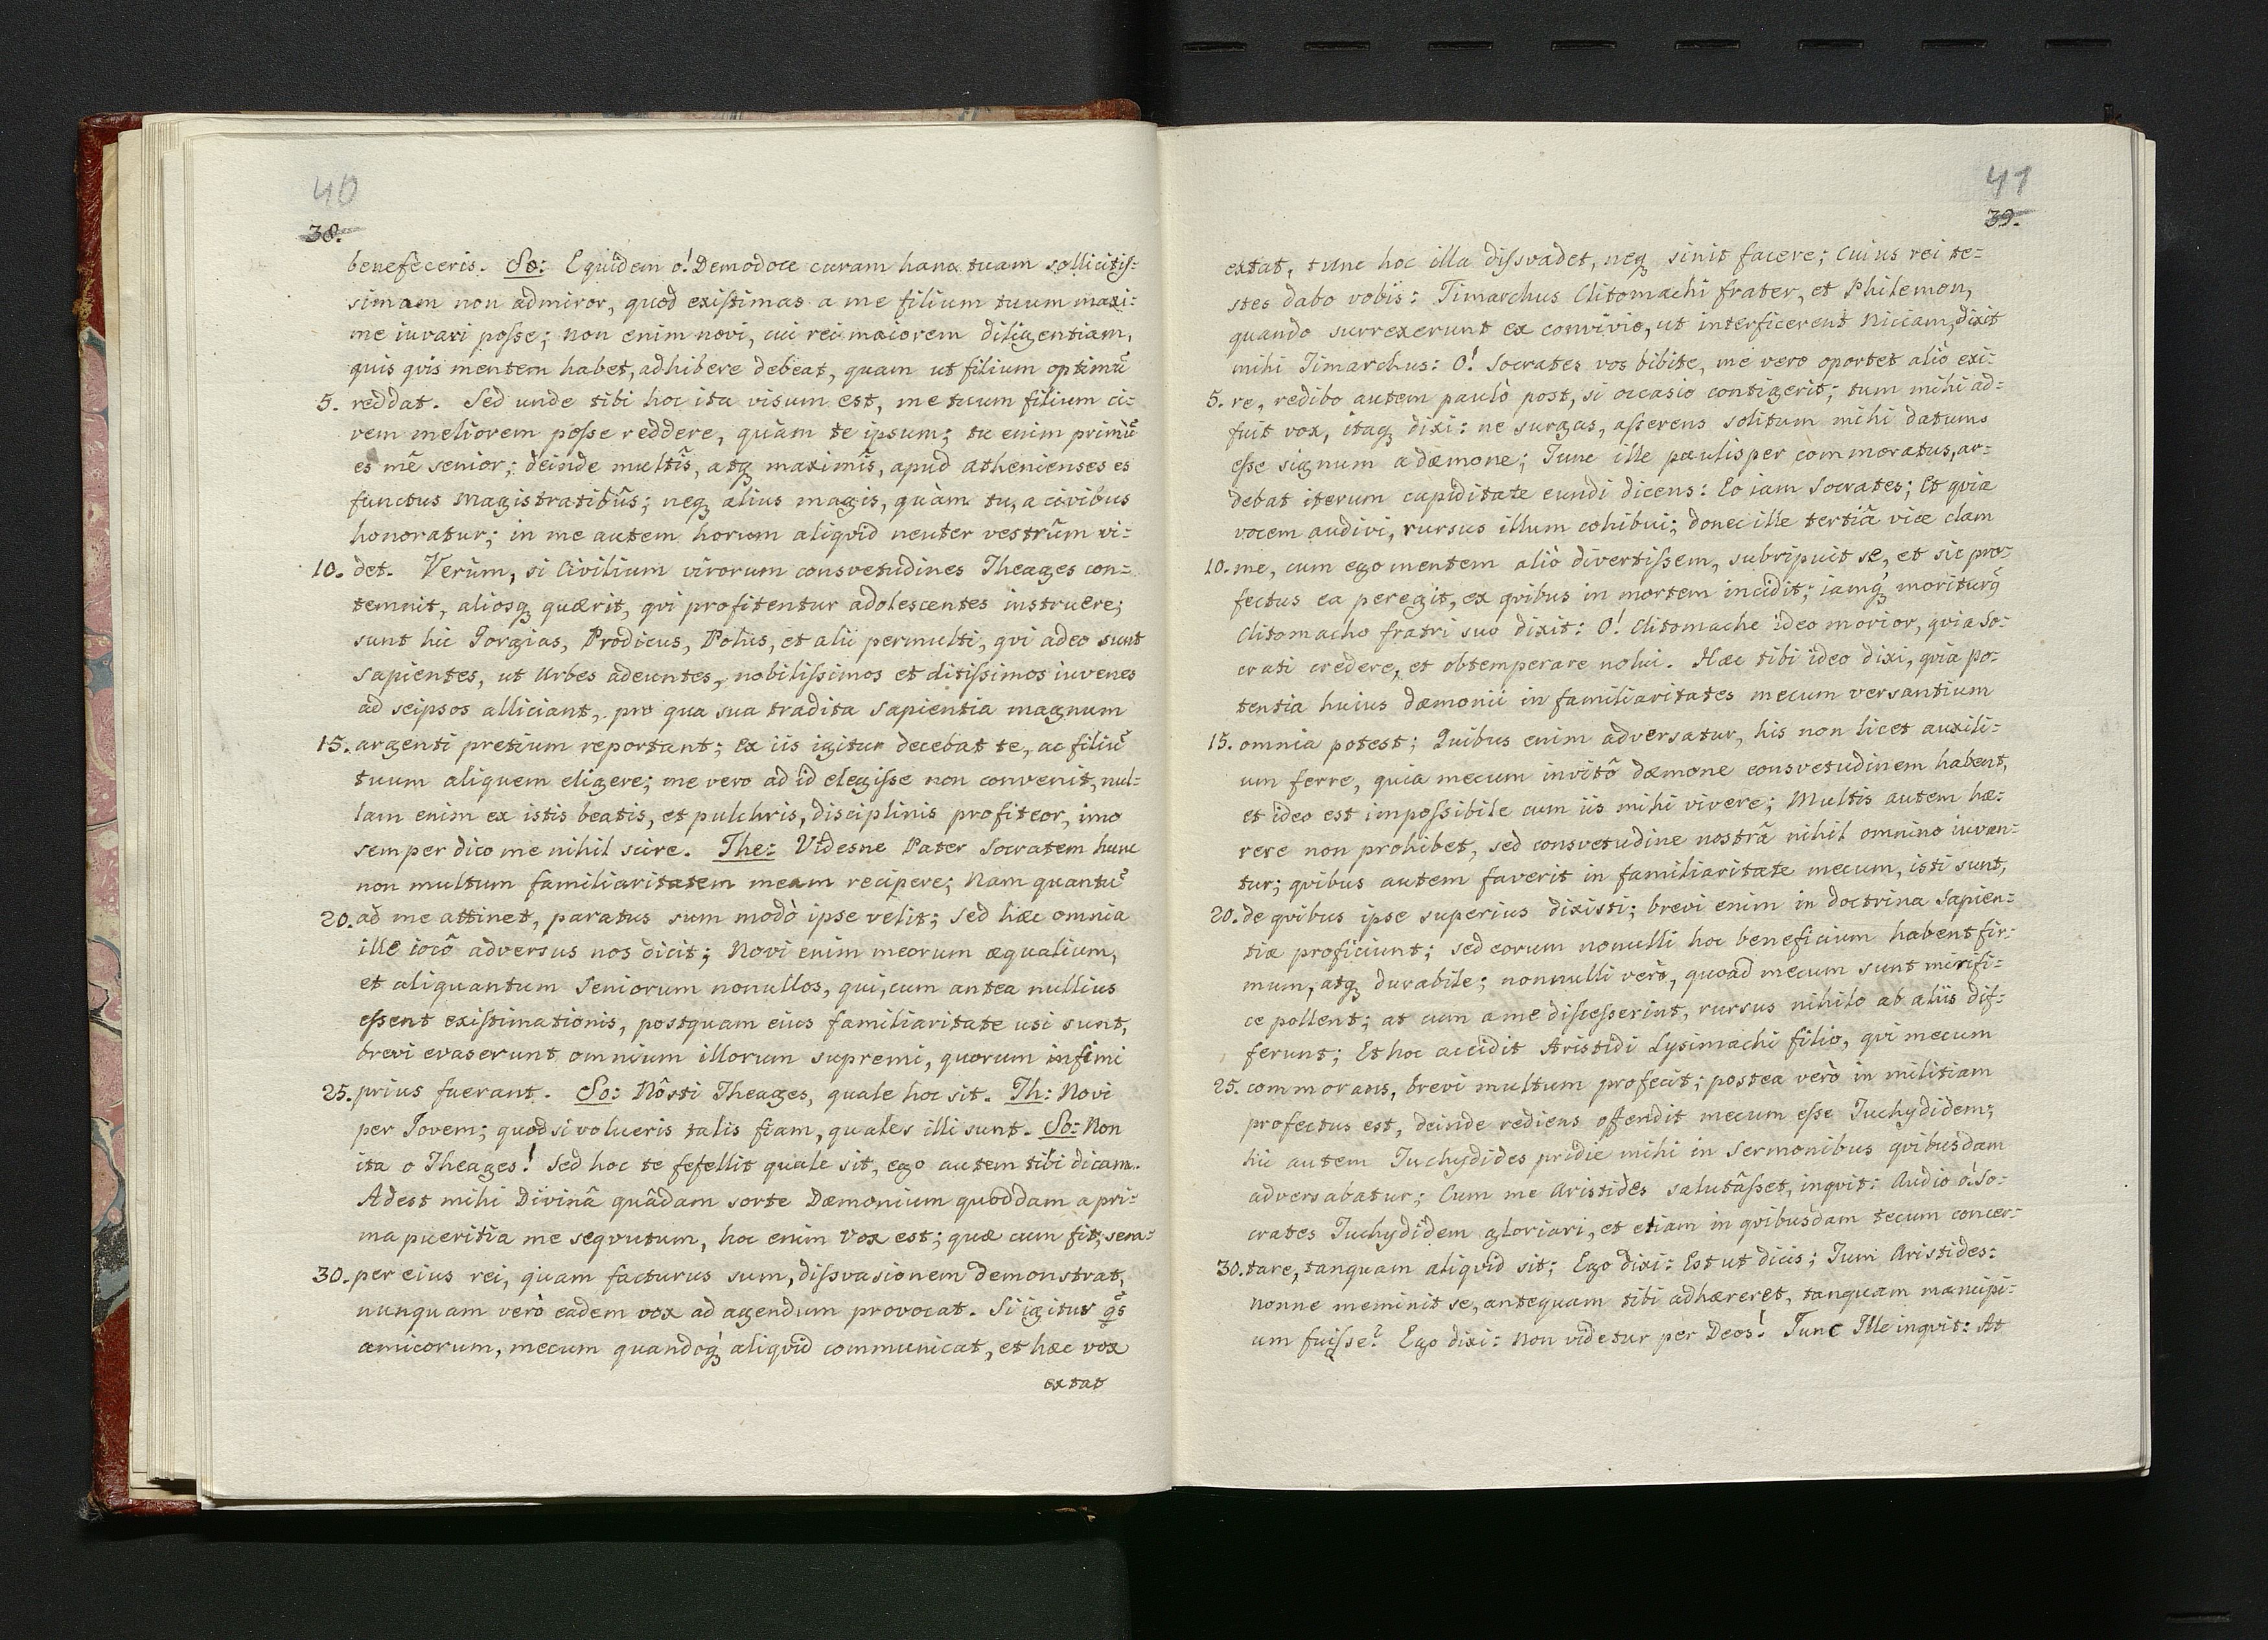 40
38.
benefeceris. So: Equidem o! Demodoce curam hanc tuam sollicitiſ=
simam non admiror, quod exiſtimas a me filium tuum maxi=
me iuvari poſse; non enim novi, cui rei maiorem diligentiam,
quis qvis mentem habet, adhibere debeat, quam ut filium optimũ
5. reddat. Sed unde tibi hoc ita visum est, me tuum filium ci=
vem meliorem poſse reddere, quàm te ipsum; tu enim primũ
es mê senior; deinde multîs, atq₃ maximîs, apud Athenienses es
functus Magistratibûs; neq₃ alius magis, quàm tu, a civibus
honoratur; in me autem horum aliqvid neuter vestrûm vi=
10. det. Verùm, si Civilium virorum consvetudines Theages con=
temnit, aliosq₃ quærit, qvi profitentur adolescentes instruere;
sunt hic Gorgias, Prodicus, Polus, et alii permulti, qvi adeo sunt
sapientes, ut Urbes adeuntes, nobiliſsimos et ditiſsimos iuvenes
ad seipsos alliciant, pro qua sua tradita sapientia magnum
15. argenti pretium reportant; Ex iis igitur decebat te, ac filiũ
tuum aliquem eligere; me vero ad id elegiſse non convenit, nul=
lam enim ex istis beatis, et pulchris, disciplinis profiteor, imo
semper dico me nihil scire. The: Videsne Pater Socratem hunc
non multum familiaritatem meam recipere; Nam quantũ
20. ad me attinet, paratus sum modò ipse velit; sed hæc omnia
ille iocô adversus nos dicit; Novi enim meorum æqualium,
et aliquantum Seniorum nonullos, qui, cum antea nullius
eſsent exiſtimationis, postquam eius familiaritate usi sunt,
brevi evaserunt omnium illorum supremi, quorum infimi
25. prius fuerant. So: Nôsti Theages, quale hoc sit. Th: Novi
per Jovem; quod si volueris talis fiam, quales illi sunt. So: Non
ita o Theages! sed hoc te fefellit quale sit, ego autem tibi dicam.
Adest mihi Divinâ quâdam sorte Dæmonium quoddam a pri=
ma pueritia me seqvutum, hoc enim Vox est; quæ cum fit, sem=
30. per eius rei, quam facturus sum, diſsvasionem demonstrat,
nunquam verò eadem vox ad agendum provocat. Si igitur q̃s
amicorum, mecum quandoq₃ aliqvid communicat, et hæc vox
extat
41
39.
extat, tunc hoc illa diſsvadet, neq₃ sinit facere; Cuius rei te=
stes dabo vobis: Timarchus Clitomachi frater, et Philemon,
quando surrexerunt ex convivio, ut interficerent Niciam, dixit
mihi Timarchus: O! Socrates vos bibite, me vero oportet aliò exi=
5. re, redibo autem paulò post, si occasio contigerit; tum mihi ad=
fuit vox, itaq₃ dixi: ne surgas, aſserens solitum mihi datum
eſse signum a dæmone; Tunc ille paulisper commoratus, ar=
debat iterum cupiditate eundi dicens: Eo iam Socrates; Et qvia
vocem audivi, rursus illum cohibui; donec ille tertiâ vice clam
10. me, cum ego mentem aliò divertiſsem, subripuit se, et sic pro=
fectus ea peregit, ex qvibus in mortem incidit; iamq₃ moriturq̃
Clitomacho fratri suo dixit: O! Clitomache ideo morior, qvia So=
crati credere, et obtemperare nolui. Hæc tibi ideo dixi, qvia po=
tentia huius dæmonii in familiaritates mecum versantium
15. omnia potest; Quibus enim adversatur, his non licet auxili=
um ferre, quia mecum invitô dæmone consvetudinem habent,
et ideo est impoſsibile cum iis mihi vivere; Multis autem hæ=
rere non prohibet, sed consvetudine nostrâ nihil omnino iuvan=
tur; qvibus autem faverit in familiaritate mecum, isti sunt,
20. de qvibus ipse superius dixisti; brevi enim in doctrina Sapien=
tiæ proficiunt; sed eorum nonulli hoc beneficium habent fir=
mum, atq₃ durabile; nonnulli verò, quoad mecum sunt mirifi=
ce pollent; at cum a me diſceſserint, rursus nihilo ab aliis dif=
ferunt; Et hoc accidit Aristidi Lysimachi filio, qvi mecum
25. commorans, brevi multum profecit; postea verò in militiam
profectus est, deinde rediens offendit mecum eſse Tuchydidem;
hic autem Tuchydides pridie mihi in Sermonibus qvibusdam
adversabatur; Cum me Aristides salutâſset, inqvit: Audio ô! So=
crates Tuchydidem gloriari, et etiam in qvibusdam tecum concer=
30. tare, tanquam aliqvid sit; Ego dixi: Est ut dicis; Tum Aristides:
nonne meminit se, antequam tibi adhæreret, tanquam mancipi=
um fuiſse? Ego dixi: Non videtur per Deos! Tunc Ille inqvit: At